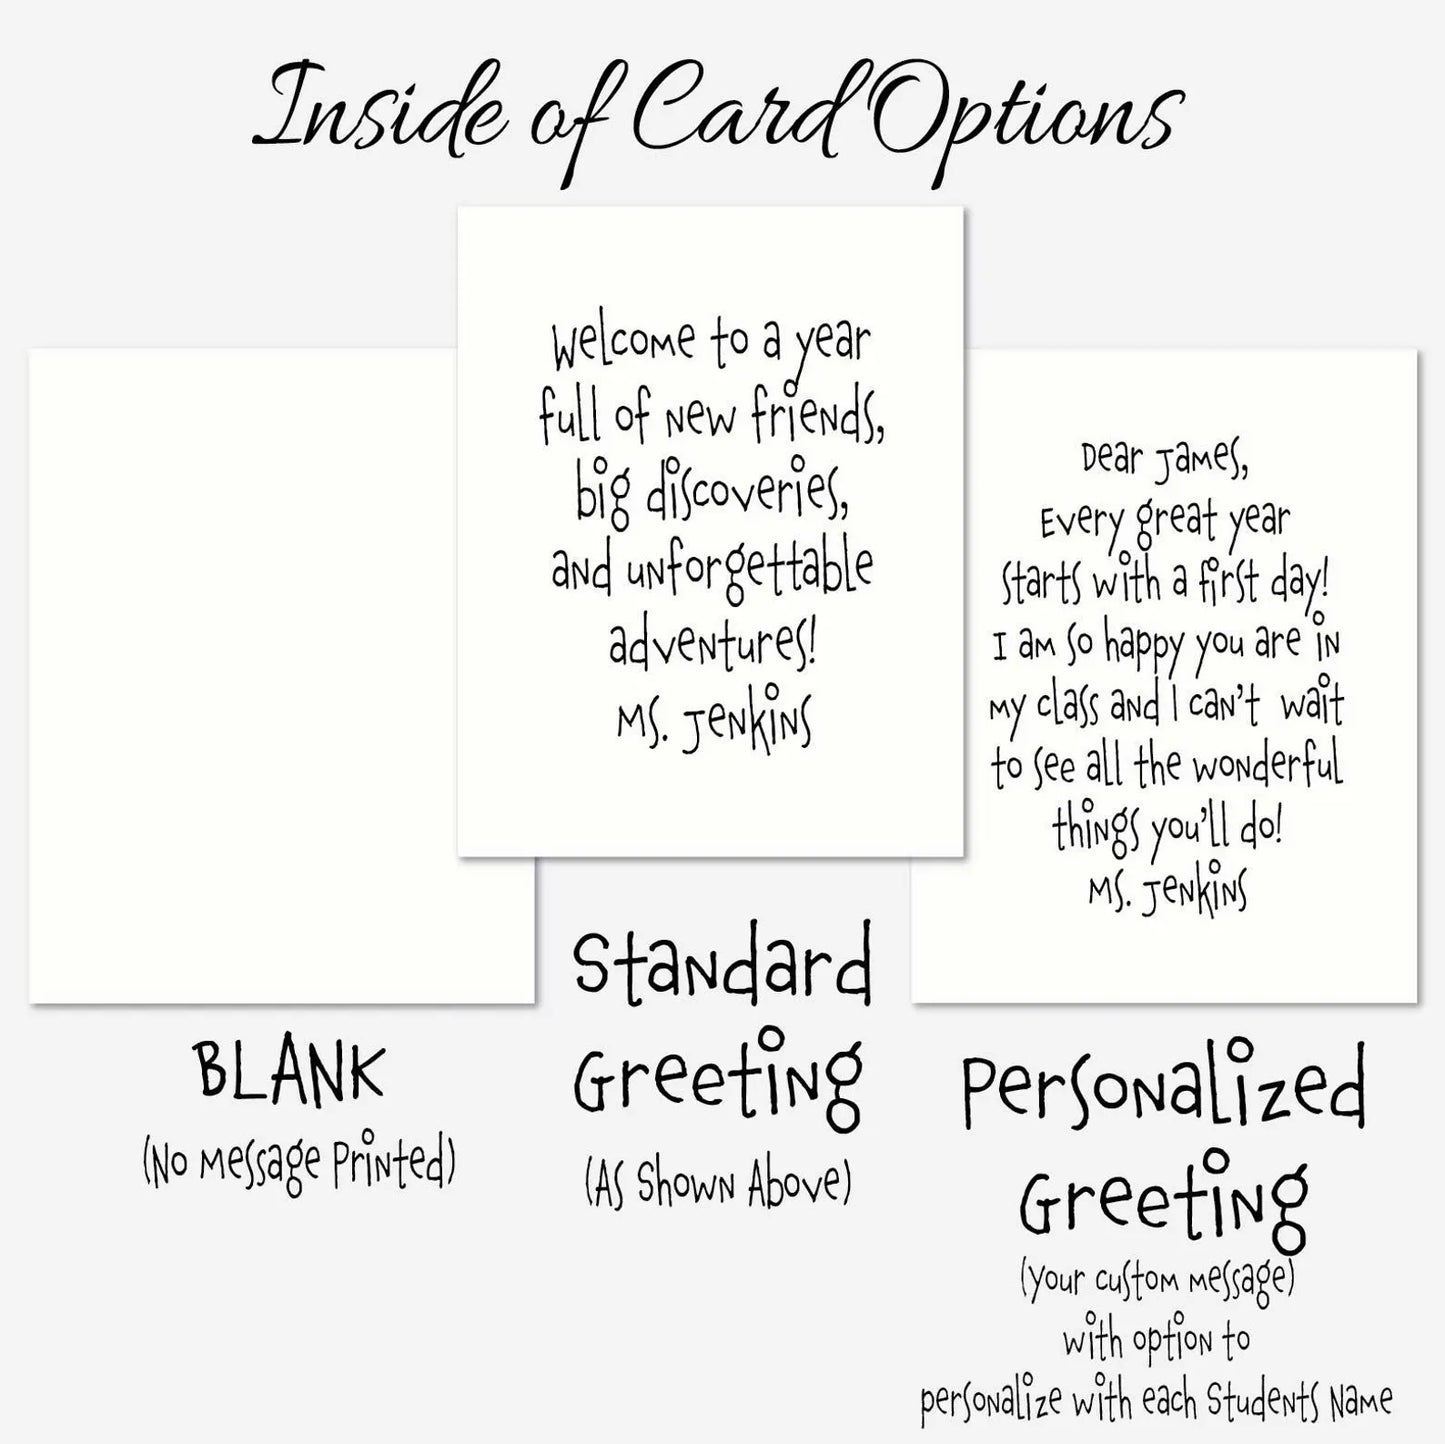 Inside of Card Options
Welcome to a year
full of new friends,
big discoveries,
and unforgettable
adventures!
Ms. Jenkins
Dear James,
Every great year
starts with a first day!
I am so happy you are in
my class and I can't wait
to see all the wonderful
things you'll do!
Ms. Jenkins
BLANK
(No Message Printed)
Standard
Greeting
(As Shown Above)
Personalized
Greeting
(your custom message)
with option to
personalize with each Students Name